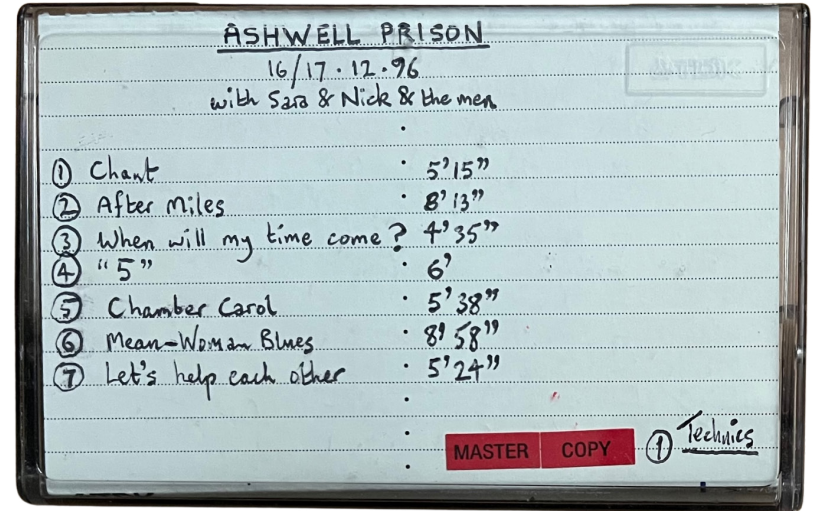 ASHWELL PRISON
16/17.12.96
with Sara & Nick & the men
① Chant 5'15"
② After Miles 8'13"
③ When will my time come? 4'35"
④ "5" 6'
⑤ Chamber Carol 5'38"
⑥ Mean-Woman Blues 8'58"
⑦ Let's help each other 5'24"
MASTER COPY ① Technics